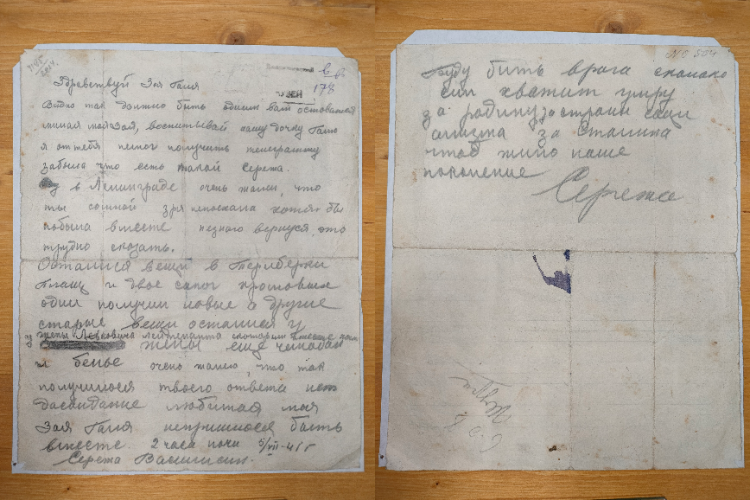 Здревствуй Зая Галя
178
Видно так должно быть одним вам оставатся
милая моя Зая, воспитывай нашу дочку Галю
я от тебя не мог получить телеграмму
забыла что есть такой Сережа.
в Ленинграде очень жалко, что
ты сомной зря непоехала хотя бы
побыла вместе незнаю вернуся это
трудно сказать.
Осталися вещи в Териберки
Плащ и двое сапог простовые
одни получил новые а другие
старые вещи осталися у
жены Левковича лейтенанта
жены еще чемодан
и белье очень жалко, что так
получилося твоего ответа нет
досвидание любимая моя
Зая Галя непришлося быть
вместе. 2 часа ночи 5/VII-41 г
Сережа Василисин.
Буду бить врага сколько
сил хватит умру
за родину, за страны соци
ализма за Сталина
чтоб жило наше
поколение
Сережа